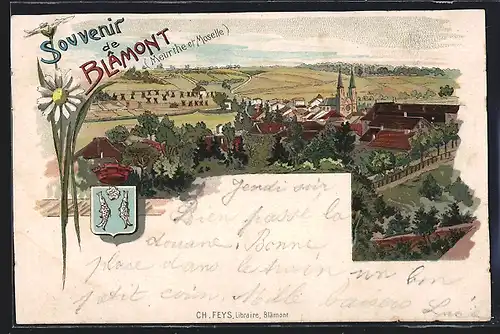 Souvenir
de
BLÂMONT
(Meurthe et Moselle)
Jeudi soir
Bien passé la
douane. Bonne
place dans le train un bon
petit coin. Mille baisers
CH. FEYS, Libraire, Blâmont